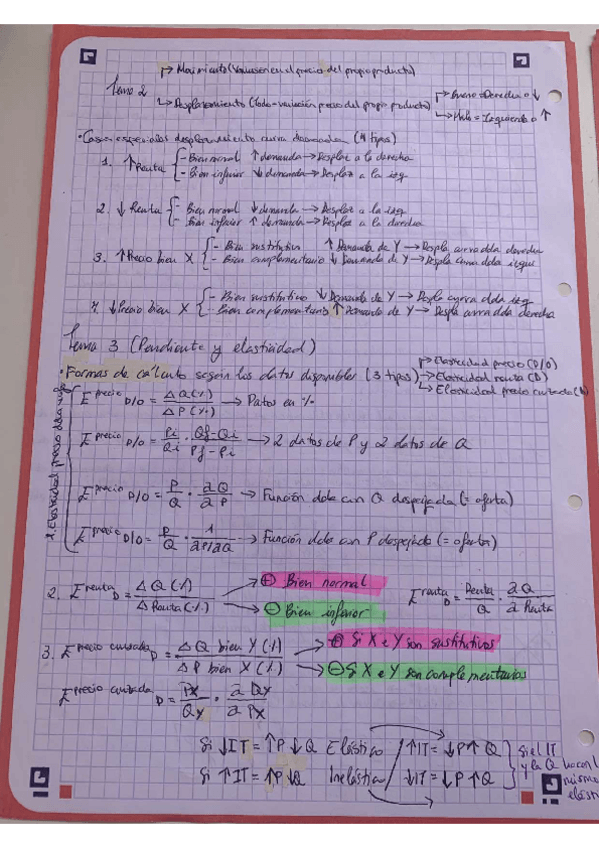 → Movimiento (Variación en el precio del propio producto)
Tema 2
→ Desplazamiento (Todo - variación precio del propio producto)
→ Bueno = Derecha o ↓
→ Malo = Izquierda o ↑
• Casos especiales desplazamiento curva demanda (4 tipos)
1. ↑ Renta { - Bien normal ↑ demanda → Desplaz a la derecha
- Bien inferior ↓ demanda → Desplaz a la izq
2. ↓ Renta { - Bien normal ↓ demanda → Desplaz a la izq
- Bien inferior ↑ demanda → Desplaz a la derecha
3. ↑ Precio bien X { - Bien sustitutivo ↑ Demanda de Y → Despla curva dda derecha
- Bien complementario ↓ Demanda de Y → Despla curva dda izqui
4. ↓ Precio bien X { - Bien sustitutivo ↓ Demanda de Y → Despla curva dda izq
- Bien complementario ↑ Demanda de Y → Despla curva dda derecha
Tema 3 (Pendiente y elasticidad)
• Formas de cálculo según los datos disponibles (3 tipos)
→ Elasticidad precio (D/O)
→ Elasticidad renta (D)
→ Elasticidad precio cruzada (D)
1. Elasticidad precio dda
E precio D/O = ΔQ(%) / ΔP(%) → Datos en %
E precio D/O = Pi/Qi · Qf-Qi / Pf-Pi → 2 datos de P y 2 datos de Q
E precio D/O = P/Q · ∂Q/∂P → Función dda con Q despejada (= oferta)
E precio D/O = P/Q · 1 / ∂P/∂Q → Función dda con P despejada (= oferta)
2. E renta D = ΔQ (%) / Δ Renta (%) → ⊕ Bien normal
→ ⊖ Bien inferior
E renta D = Renta/Q · ∂Q / ∂ Renta
3. E precio cruzada D = ΔQ bien Y (%) / ΔP bien X (%) → ⊕ Si X e Y son sustitutivos
→ ⊖ Si X e Y son complementarios
E precio cruzada D = Px/Qy · ∂Qy / ∂Px
Si ↓IT = ↑P ↓Q Elástico / ↑IT = ↓P ↑Q } Si el IT
Si ↑IT = ↑P ↓Q Inelástico / ↓IT = ↓P ↑Q } y la Q hacen l
mismo
elásti